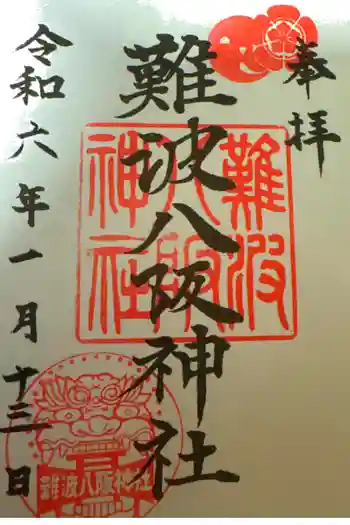 奉拝
難波八阪神社
難波
八阪
神社
令和六年一月十三日
難波八阪神社